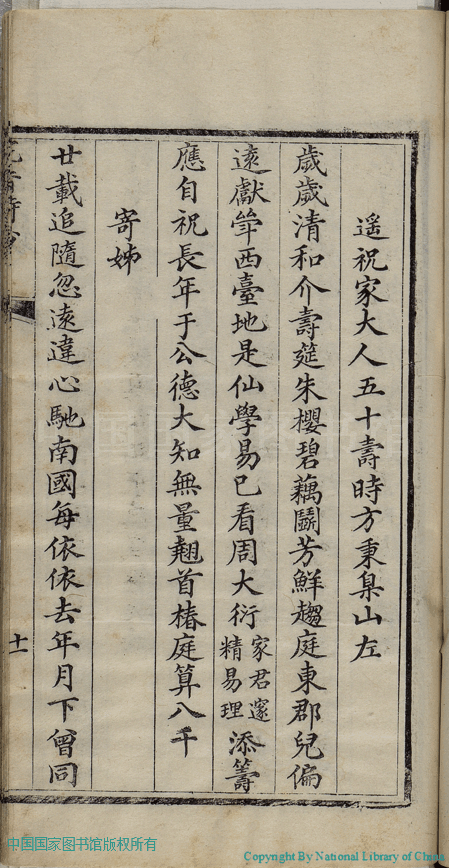 遥祝家大人五十壽時方秉臬山左
歲歲清和介壽筵朱櫻碧藕鬭芳鮮趨庭東郡兒偏
遠獻斝西臺地是仙學易已看周大衍家君邃精易理添籌
應自祝長年于公德大知無量翹首椿庭算八千
寄姊
廿載追隨忽遠違心馳南國每依依去年月下曾同
十一
中国国家图书馆版权所有
Copyright By National Library of China